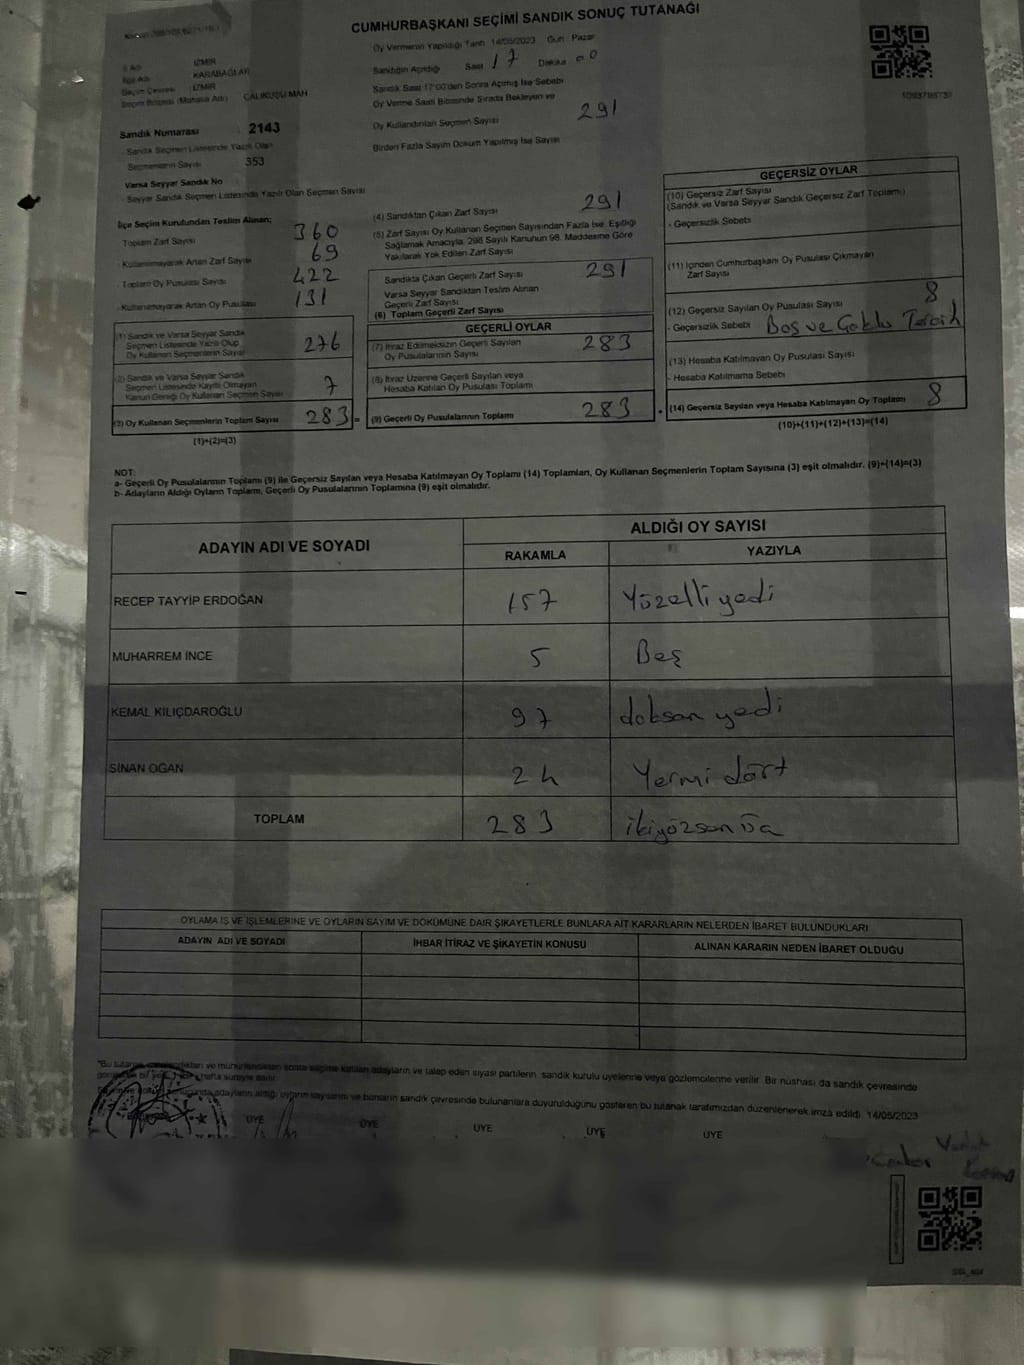 CUMHURBAŞKANI SEÇİMİ SANDIK SONUÇ TUTANAĞI
İl Adı İZMİR
İlçe Adı KARABAĞLAR
Seçim Çevresi İZMİR
Seçim Bölgesi (Mahalle Adı) ÇALIKUŞU MAH
Sandık Numarası 2143
- Sandık Seçmen Listesinde Yazılı Olan
Seçmenlerin Sayısı 353
Varsa Seyyar Sandık No
- Seyyar Sandık Seçmen Listesinde Yazılı Olan Seçmen Sayısı
İlçe Seçim Kurulundan Teslim Alınan;
Toplam Zarf Sayısı 360
- Kullanılmayarak Artan Zarf Sayısı 69
- Toplam Oy Pusulası Sayısı 422
- Kullanılmayarak Artan Oy Pusulası 131
(1) Sandık ve Varsa Seyyar Sandık
Seçmen Listesinde Yazılı Olup
Oy Kullanan Seçmenlerin Sayısı 276
(2) Sandık ve Varsa Seyyar Sandık
Seçmen Listesinde Kayıtlı Olmayan
Kanun Gereği Oy Kullanan Seçmen Sayısı 7
(3) Oy Kullanan Seçmenlerin Toplam Sayısı 283 =
(1)+(2)=(3)
Oy Vermenin Yapıldığı Tarih 14/05/2023 Gün : Pazar
Sandığın Açıldığı Saat 17 Dakika 00
Sandık Saat 17:00'den Sonra Açılmış İse Sebebi
Oy Verme Saati Bitiminde Sırada Bekleyen ve
Oy Kullandırılan Seçmen Sayısı 291
Birden Fazla Sayım Döküm Yapılmış İse Sayısı
(4) Sandıktan Çıkan Zarf Sayısı 291
(5) Zarf Sayısı Oy Kullanan Seçmen Sayısından Fazla İse, Eşitliği
Sağlamak Amacıyla, 298 Sayılı Kanunun 98. Maddesine Göre
Yakılarak Yok Edilen Zarf Sayısı
Sandıkta Çıkan Geçerli Zarf Sayısı 291
Varsa Seyyar Sandıktan Teslim Alınan
Geçerli Zarf Sayısı
(6) Toplam Geçerli Zarf Sayısı
GEÇERLİ OYLAR
(7) İtiraz Edilmeksizin Geçerli Sayılan
Oy Pusulalarının Sayısı 283
(8) İtiraz Üzerine Geçerli Sayılan veya
Hesaba Katılan Oy Pusulası Toplamı
(9) Geçerli Oy Pusulalarının Toplamı 283 +
GEÇERSİZ OYLAR
(10) Geçersiz Zarf Sayısı
(Sandık ve Varsa Seyyar Sandık Geçersiz Zarf Toplamı)
- Geçersizlik Sebebi
(11) İçinden Cumhurbaşkanı Oy Pusulası Çıkmayan
Zarf Sayısı
(12) Geçersiz Sayılan Oy Pusulası Sayısı 8
- Geçersizlik Sebebi Boş ve Çoklu Tercih
(13) Hesaba Katılmayan Oy Pusulası Sayısı
- Hesaba Katılmama Sebebi
(14) Geçersiz Sayılan veya Hesaba Katılmayan Oy Toplamı 8
(10)+(11)+(12)+(13)=(14)
NOT:
a- Geçerli Oy Pusulalarının Toplamı (9) ile Geçersiz Sayılan veya Hesaba Katılmayan Oy Toplamı (14) Toplamları, Oy Kullanan Seçmenlerin Toplam Sayısına (3) eşit olmalıdır. (9)+(14)=(3)
b- Adayların Aldığı Oyların Toplamı, Geçerli Oy Pusulalarının Toplamına (9) eşit olmalıdır.
ADAYIN ADI VE SOYADI ALDIĞI OY SAYISI
RAKAMLA YAZIYLA
RECEP TAYYİP ERDOĞAN 157 Yüzelli yedi
MUHARREM İNCE 5 Beş
KEMAL KILIÇDAROĞLU 97 doksan yedi
SİNAN OĞAN 24 Yermi dört
TOPLAM 283
OYLAMA İŞ VE İŞLEMLERİNE VE OYLARIN SAYIM VE DÖKÜMÜNE DAİR ŞİKAYETLERLE BUNLARA AİT KARARLARIN NELERDEN İBARET BULUNDUKLARI
ADAYIN ADI VE SOYADI İHBAR İTİRAZ VE ŞİKAYETİN KONUSU ALINAN KARARIN NEDEN İBARET OLDUĞU
sonra seçime katılan adayların ve talep eden siyasi partilerin, sandık kurulu üyelerine veya gözlemcilerine verilir. Bir nüshası da sandık çevresinde
hafta süreyle asılır.
adayların aldığı oyların sayılarını ve bunların sandık çevresinde bulunanlara duyurulduğunu gösteren bu tutanak tarafımızdan düzenlenerek imza edildi. 14/05/2023
ÜYE ÜYE ÜYE ÜYE ÜYE